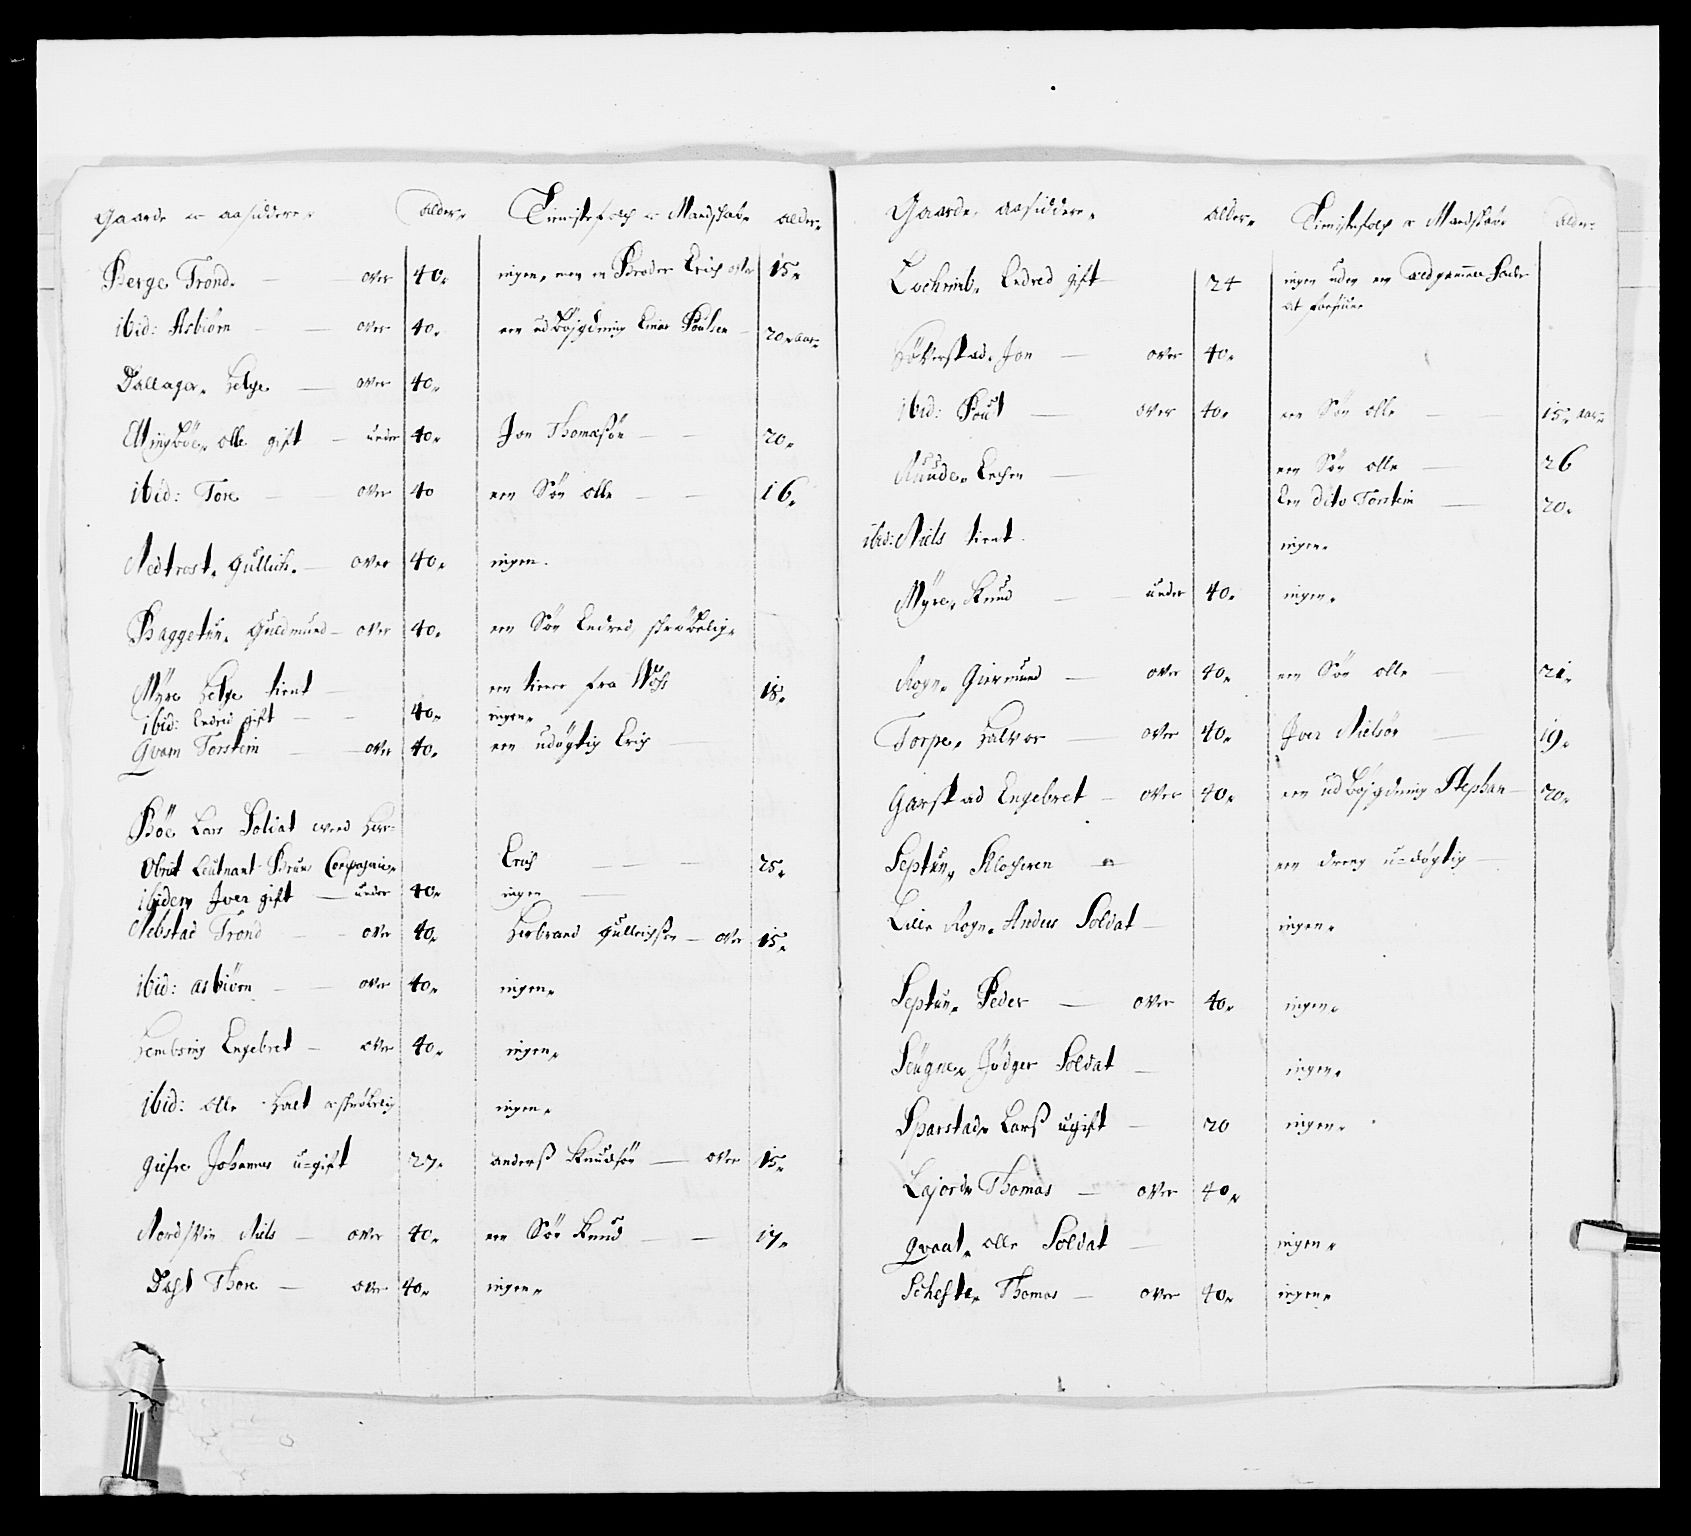 Gaarde er aasiddere. Alder. Tienistefolch er Mandskab. Alder.
Berge Trond. over 40. ingen, men en Broder Erich over 15.
ibid: Asbiörn over 40. een udbÿgding Einar Poulsen 20. aar.
Dallager. Helge over 40.
Ellingböe. olle gift under 40. Jon Thomæsön 20.
ibid: Tore over 40 een Sön olle 16.
Nedtrost. Gullich. over 40. ingen.
Baggetun. Guldmund over 40. een Sön Endred, skröbelig.
Myre Helge tient een tiener fra Wahs 18.
ibid: Endred gift 40. ingen.
Qvam Torstein over 40. een udögtig Erich
Böe Lars Soldat wed Her
Obrist Leutnant Bruns Compagnie Erich 25.
ibidem Iver gift under 40. ingen
Nebstad Trond over 40. Herbrand Gullichsen over 15.
ibid: asbiörn over 40. ingen.
Hembsing Engebret over 40. ingen.
ibid: olle Halt er skröbelig ingen.
giefre Johannes u=gift 27. anderß Knudsön over 15.
Nordsvin Niels over 40. een Sön Knud 17.
Dahl Thore over 40. ingen.
Gaarde. aasiddere. Alder. Tienistefolch er Mandskab Alder.
Lochnib. Endred gift 24 ingen uden en ældgammel Fader
at forsiune
Höverstad. Jon over 40.
ibid: Poul over 40. een Sön olle 15. aar.
Ruude. Enchen een Sön olle 26
Een dito Torstein 20.
ibid: Niels tient ingen.
Mÿre. Knud under 40. ingen.
Rogn. Giermund over 40. een Sön olle 21.
Torpe. Halvor over 40. Iver Nielsön 19.
Garstad Engebret over 40. een udbÿgding Stephan 20.
Leptun. Klocheren een dreng u=dögtig
Lille Rogn. Anders Soldat ingen.
Leptun. Peder over 40. ingen.
Leugne. Jödger Soldat ingen.
Sparstad. Larß ugift 20 ingen.
Lajord. Thomas over 40.
Qvaal. olle Soldat ingen.
Schefte. Thomas over 40. ingen.